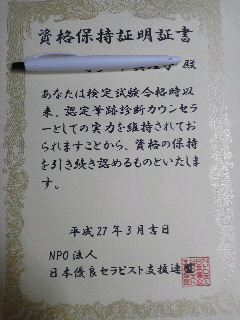 資格保持証明証書
殿
あなたは検定試験合格時以
来、認定筆跡診断カウンセラ
ーとしての実力を維持されてお
られますことから、資格の保持
を引き続き認めるものといたしま
す。
平成27年3月吉日
NPO法人
日本優良セラピスト支援連